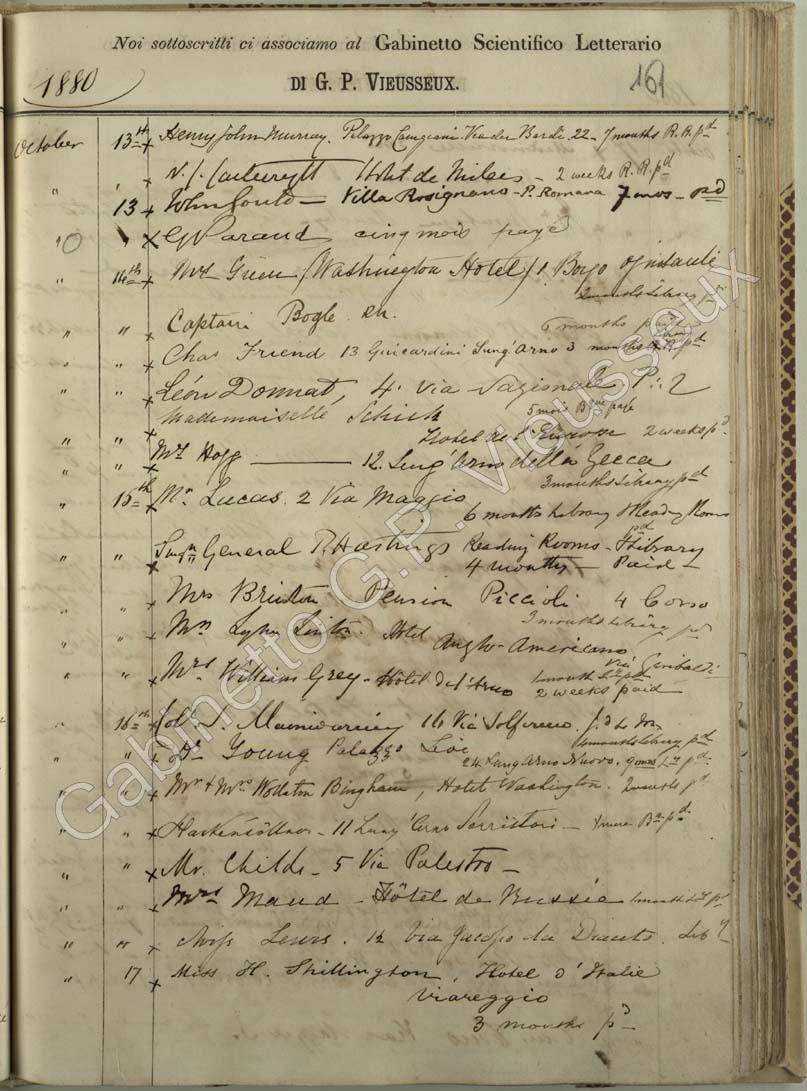 Noi sottoscritti ci associamo al Gabinetto Scientifico Letterario
DI G. P. VIEUSSEUX.
1880
161
October 13th x Henry John Murray. Palazzo Canigiani Via dei Bardi 22 - 7 months R. R. pd
" " x Hotel de Milan - 2 weeks R. R. pd
13 x John Gould - Villa Rosignano - P. Romana 7 mos - pd
" x cinq mois payé
" 14th x Mrs Green (Washington Hotel) 1. Borgo Ognissanti
2 months Library pd
" " x Captain Bogle
6 months paid
" " x Chas Friend 13 Guicardini Lung'Arno 3 months pd
" " x Léon Donnat, 4. via Nazionale P: 2
5 mois payé
" " x Mademoiselle Schick
Hotel de l'Europe 2 weeks pd
" " x Mr Hogg 12. Lung'Arno della Zecca
3 months Library pd
" 15th x Mr Lucas. 2 Via Maggio
6 months Library & Reading Rooms
pd
" " x Surgn General P. Hastings Reading Rooms - & Library
4 months - Paid -
" " x Mrs Brinton Pension Piccioli 4 Corso
3 months Library pd
" " x Mrs Lynn Linton. Hotel Anglo-Americano
Via Garibaldi
1 month pd
" " x Mrs William Grey - Hôtel de l'Arno 2 weeks paid
" 16th x Col. Mainwaring 16 Via Solferino.
months Library pd
" " x Dr Young Palazzo Levi
24 Lung Arno Nuovo. pd
" " x Mr & Mrs Wollaston Bingham, Hotel Washington. 2 months pd
" " x 11 Lung'Arno Serristori - pd
" " x Mr. Childs - 5 Via Palestro -
" " x Mrs Maud - Hôtel de Russie 1 month pd
" " x Miss Lewis. 12 Via
" 17 x Miss H. Shillington, Hotel d'Italie
Viareggio
3 months pd
Gabinetto G.P. Vieusseux